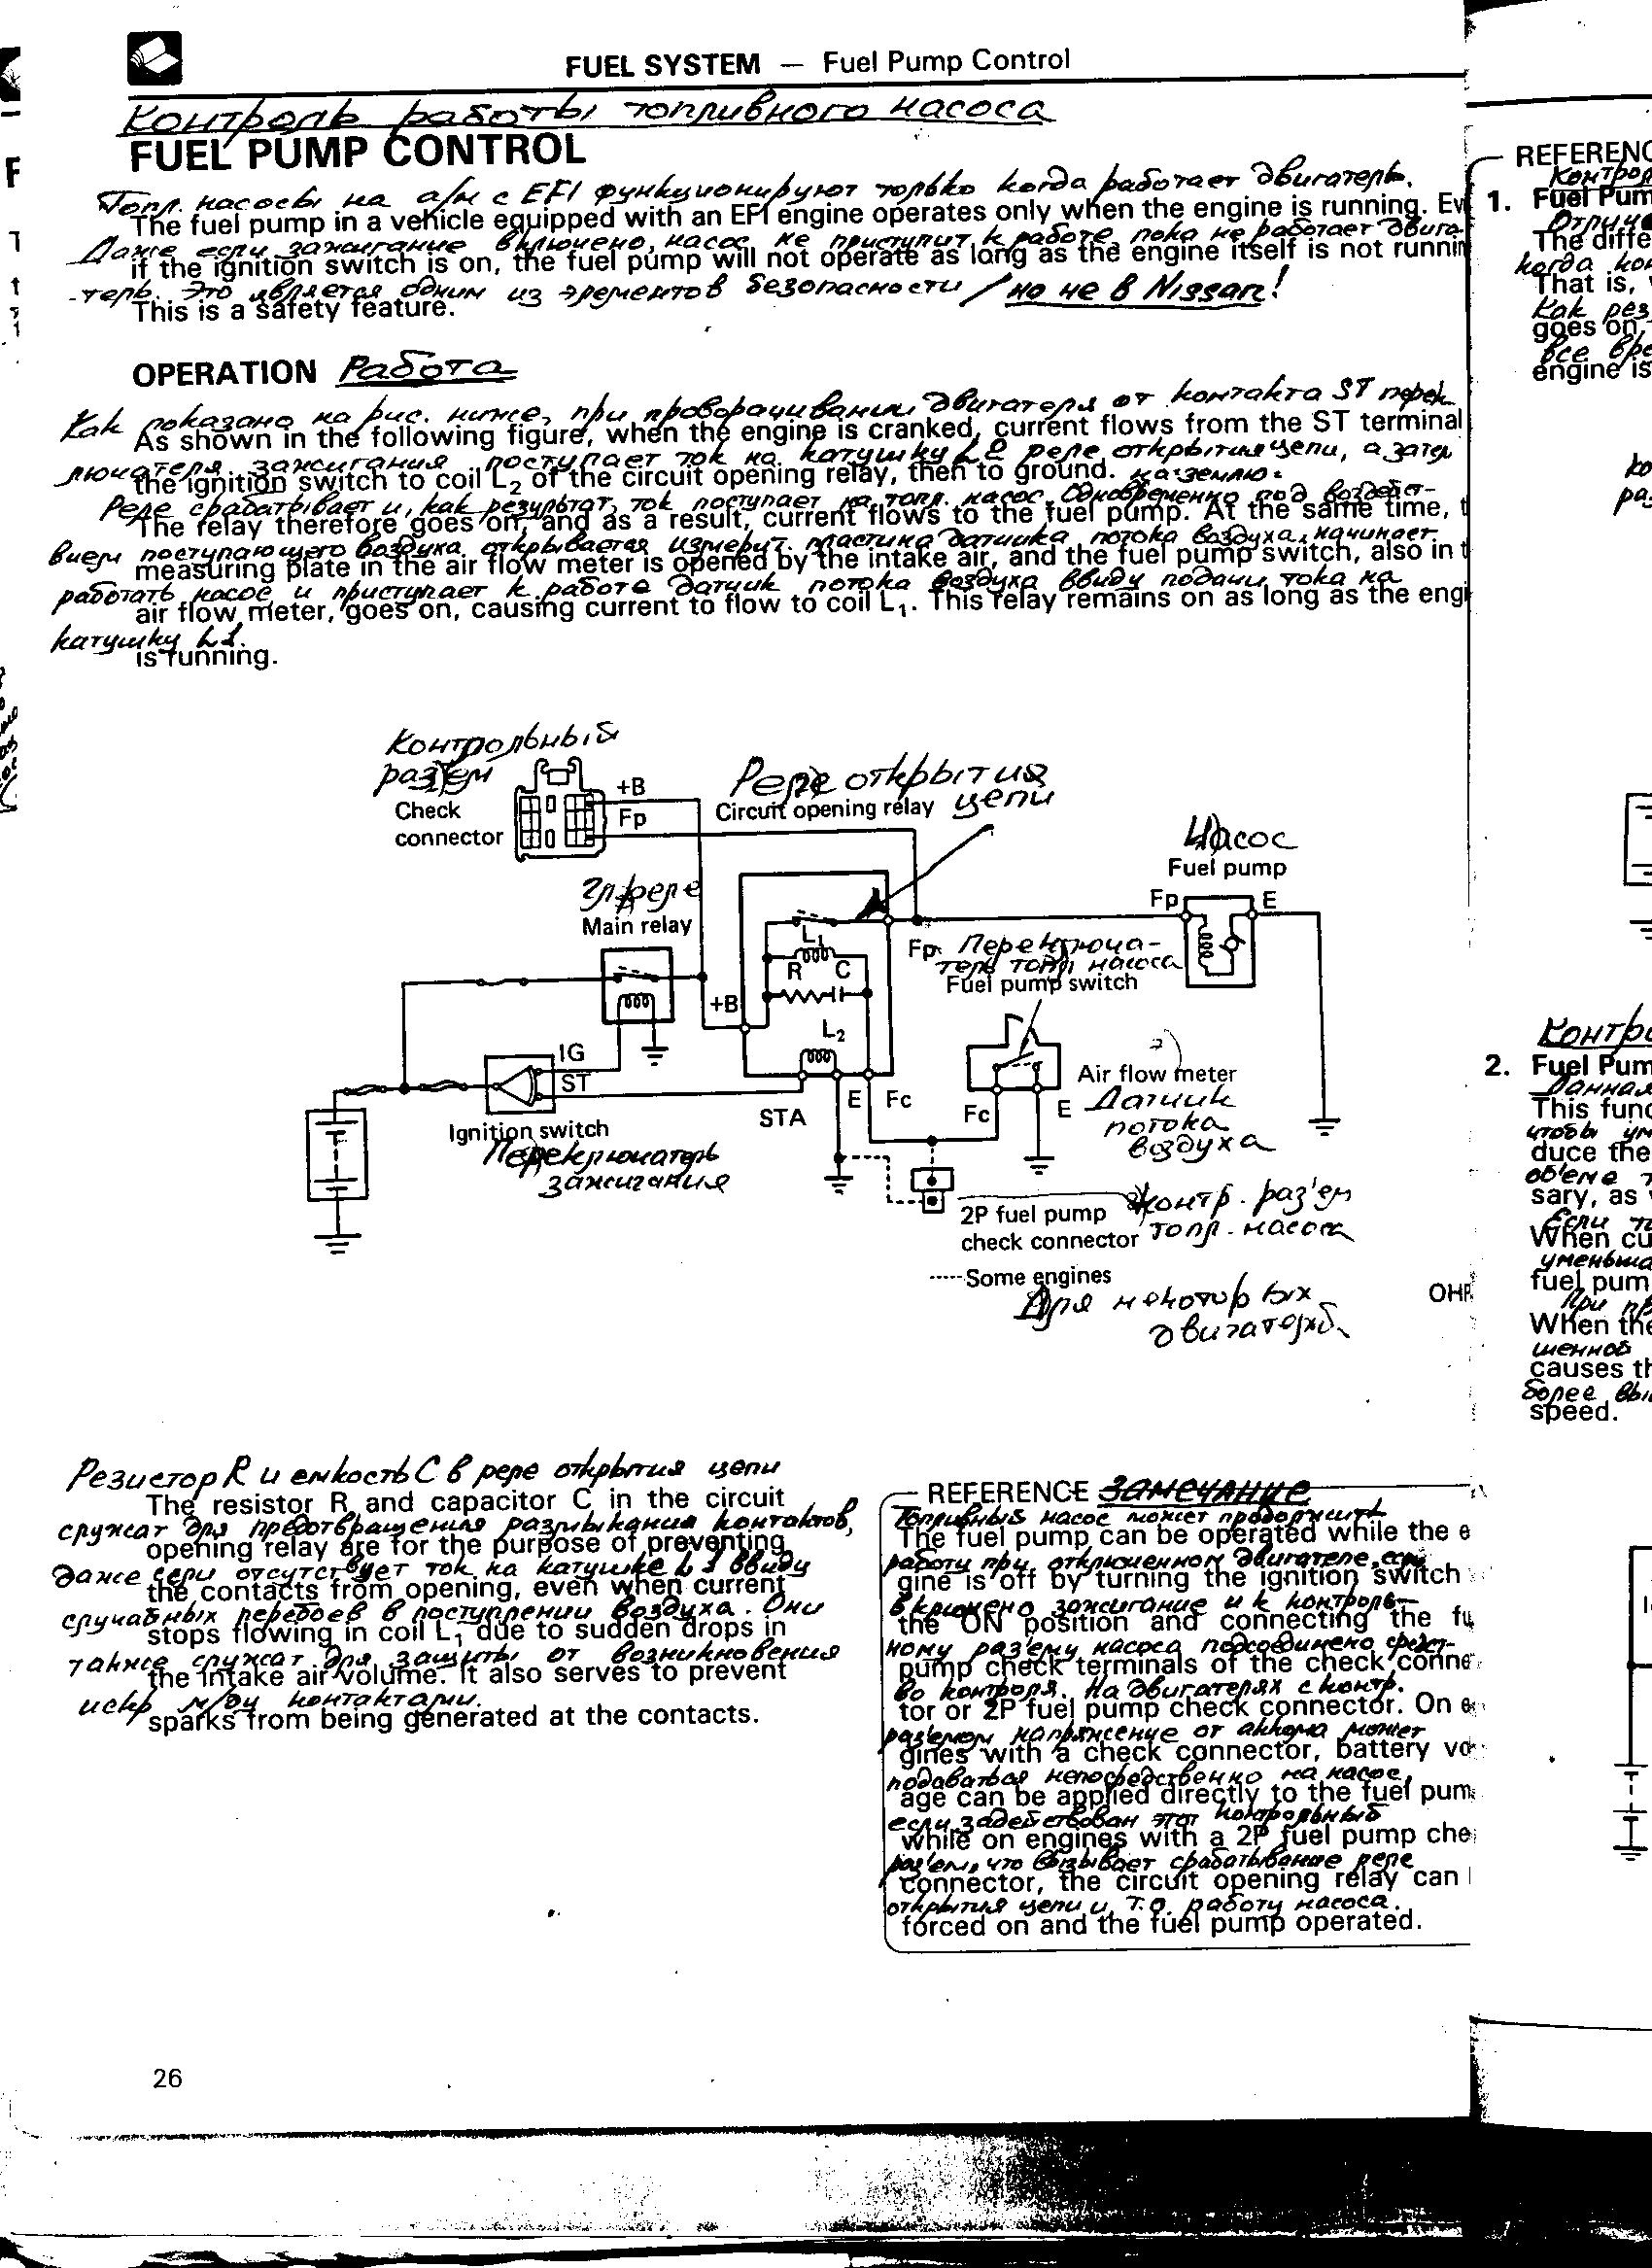 FUEL SYSTEM — Fuel Pump Control
Контроль работы топливного насоса
FUEL PUMP CONTROL
Топл. насосы на а/м с EFI функционируют только когда работает двигатель.
The fuel pump in a vehicle equipped with an EFI engine operates only when the engine is running. Ev
Даже если зажигание включено, насос не приступит к работе пока не работает двига-
if the ignition switch is on, the fuel pump will not operate as long as the engine itself is not runnin
-тель. Это является одним из элементов безопасности / но не в Nissan!
This is a safety feature.
OPERATION Работа
Как показано на рис. ниже, при проворачивании двигателя от контакта ST перек-
As shown in the following figure, when the engine is cranked, current flows from the ST terminal
лючателя зажигания поступает ток на катушку L2 реле открытия цепи, а затем
the ignition switch to coil L₂ of the circuit opening relay, then to ground. на землю.
Реле срабатывает и, как результат, ток поступает на топл. насос. Одновременно под воздейст-
The relay therefore goes on, and as a result, current flows to the fuel pump. At the same time, t
вием поступающего воздуха открывается измерит. пластина датчика потока воздуха, начинает
measuring plate in the air flow meter is opened by the intake air, and the fuel pump switch, also in t
работать насос и приступает к работе датчик потока воздуха ввиду подачи тока на
air flow meter, goes on, causing current to flow to coil L₁. This relay remains on as long as the engi
катушку L1.
is running.
Контрольный
раз'ем
Check
connector
+B
Fp
Реле открытия
цепи
Circuit opening relay
Насос
Fuel pump
Fp
E
Гл. реле
Main relay
L₁
R C
+B
L₂
Fp
Переключа-
тель топл. насоса
Fuel pump switch
IG
ST
STA
E
Fc
Fc
E
Air flow meter
Датчик
потока
воздуха
Ignition switch
Переключатель
зажигания
2P fuel pump
check connector
контр. раз'ем
топл. насоса
Some engines
Для некоторых
двигателей
OHP
Резистор R и емкость C в реле открытия цепи
The resistor R and capacitor C in the circuit
служат для предотвращения размыкания контактов,
opening relay are for the purpose of preventing
даже если отсутствует ток на катушке L1 ввиду
the contacts from opening, even when current
случайных перебоев в поступлении воздуха. Они
stops flowing in coil L₁ due to sudden drops in
также служат для защиты от возникновения
the intake air volume. It also serves to prevent
искр м/ду контактами.
sparks from being generated at the contacts.
REFERENCE ЗАМЕЧАНИЕ
Топливный насос может продолжить
The fuel pump can be operated while the e
работу при отключенном двигателе, если
gine is off by turning the ignition switch
включено зажигание и к контроль-
the ON position and connecting the fu
ному раз'ему насоса подсоединено средст-
pump check terminals of the check conne
во контроля. На двигателях с контр.
tor or 2P fuel pump check connector. On e
раз'емом напряжение от аккума может
gines with a check connector, battery vo
подаваться непосредственно на насос,
age can be applied directly to the fuel pum
если задействован этот контрольный
while on engines with a 2P fuel pump che
раз'ем, что вызывает срабатывание реле
connector, the circuit opening relay can
открытия цепи и т.о. работу насоса.
forced on and the fuel pump operated.
26
REFERENC
Контрол
1. Fuel Pum
Отличие
The diffe
когда
That is,
Как рез
goes on,
все вре
engine is
Контро
2. Fuel Pum
Данная
This func
чтобы ум
duce the
об'еме
sary, as
Если
When cu
уменьша
fuel pum
При пр
When the
шенной
causes th
более вы
speed.